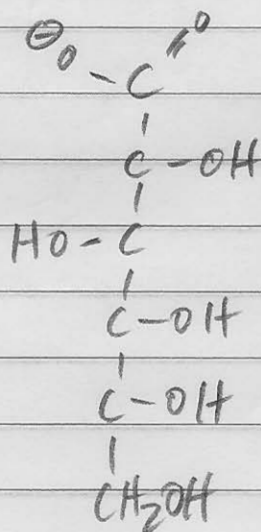 ⊖O - C = O
C - OH
HO - C
C - OH
C - OH
CH₂OH